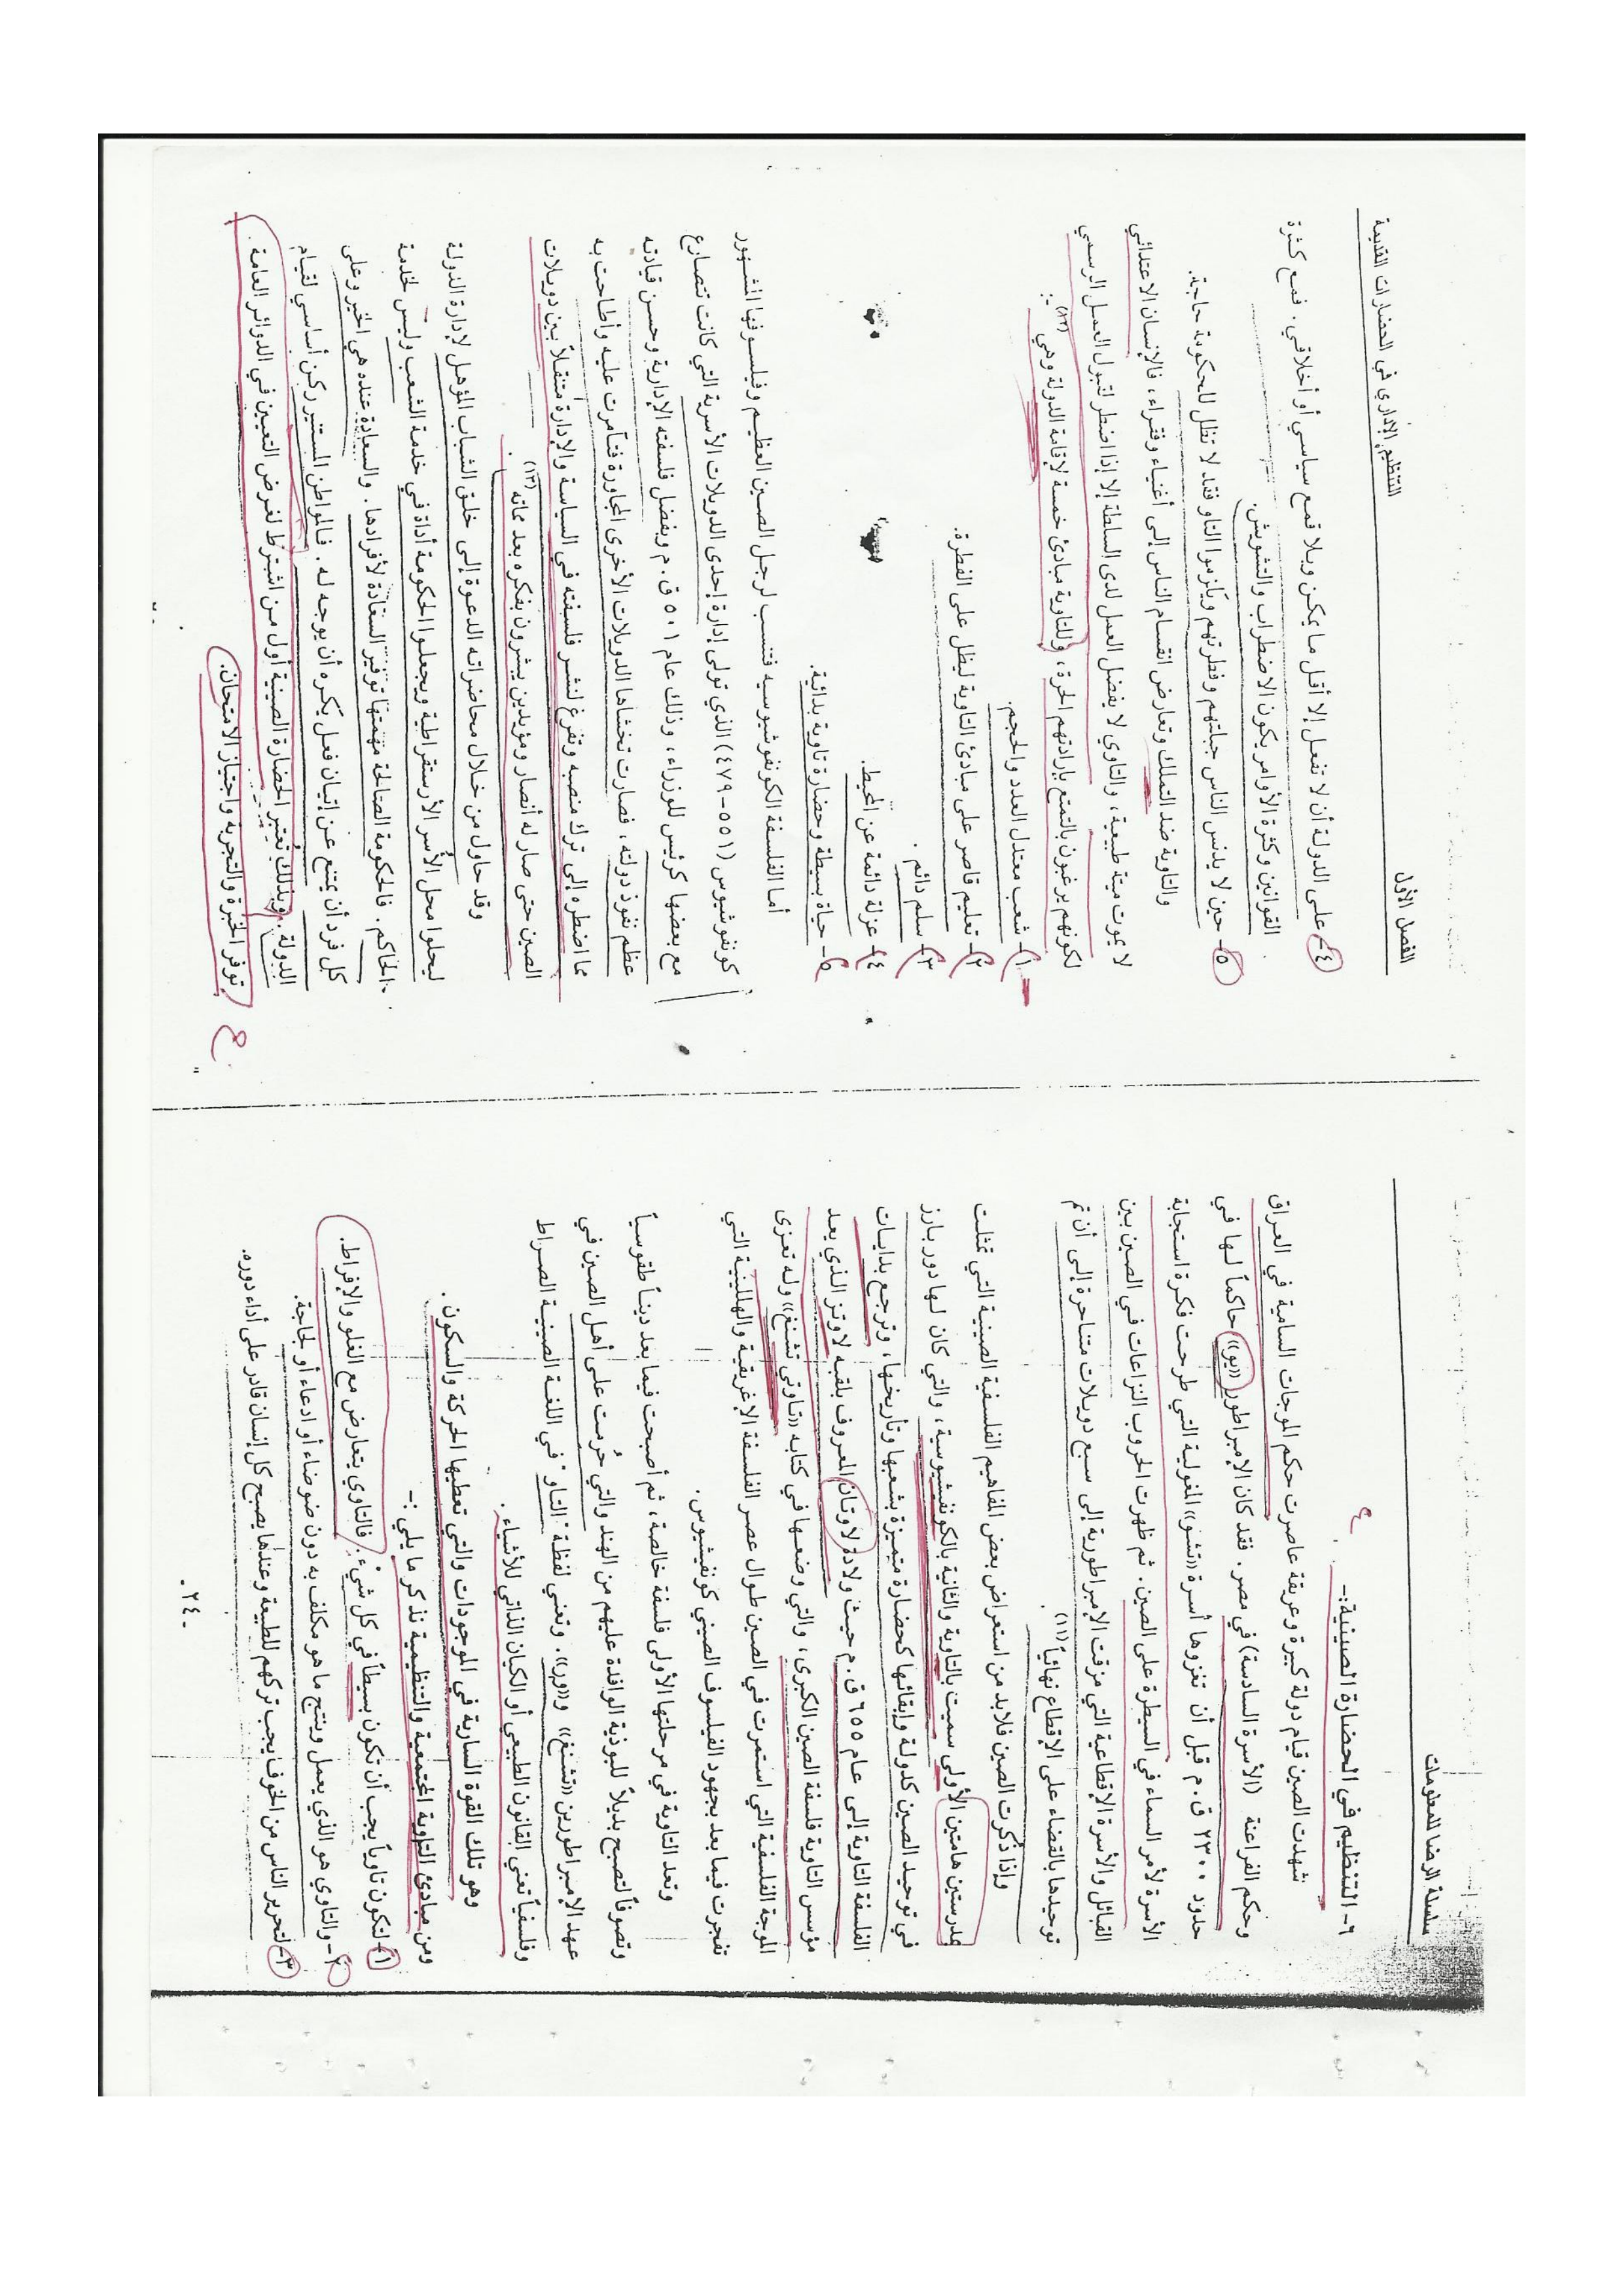 سلسلة الرضا للمعلومات
٦- التنظيم في الحضارة الصينية:-
شهدت الصين قيام دولة كبيرة وعريقة عاصرت حكم الموجات السامية في العراق
وحكم الفراعنة (الأسرة السادسة) في مصر. فقد كان الإمبراطور «يو» حاكماً لها في
حدود ٢٣٠٠ ق.م قبل أن تغزوها أسرة «تشو» المغولية التي طرحت فكرة استجابة
الأسرة لأمر السماء في السيطرة على الصين. ثم ظهرت الحروب النزاعات في الصين بين
القبائل والأسرة الإقطاعية التي مزقت الإمبراطورية إلى سبع دويلات متناحرة إلى أن تم
توحيدها بالقضاء على الإقطاع نهائياً(١١).
وإذا ذكرت الصين فلابد من استعراض بعض المفاهيم الفلسفية الصينية التي تمثلت
بمدرستين هامتين الأولى سميت بالتاوية والثانية بالكونفشيوسية، والتي كان لها دور بارز
في توحيد الصين كدولة وإبقائها كحضارة متميزة بشعبها وتأريخها، وترجع بدايات
الفلسفة التاوية إلى عام ٦٥٥ ق.م حيث ولادة لاوتان المعروف بلقبه لاوتز الذي يعد
مؤسس التاوية فلسفة الصين الكبرى، والتي وضعها في كتابه «تاوتي تشنغ» وله تعزى
الموجة الفلسفية التي استمرت في الصين طوال عصر الفلسفة الإغريقية والهللينية التي
تفجرت فيما بعد بجهود الفيلسوف الصيني كونفيشيوس.
وتعد التاوية في مرحلتها الأولى فلسفة خالصة، ثم أصبحت فيما بعد ديناً طقوسياً
وتصوفاً لتصبح بديلاً للبوذية الوافدة عليهم من الهند والتي حُرمت على أهل الصين في
عهد الإمبراطورين «تشنغ» و«ور». وتعني لفظة "التاو" في اللغة الصينية الصراط
وفلسفياً تعني القانون الطبيعي أو الكيان الذاتي للأشياء.
وهو تلك القوة السارية في الموجودات والتي تعطيها الحركة والسكون.
ومن مبادئ التاوية المجتمعية والتنظيمية نذكر ما يلي:-
١- لتكون تاوياً يجب أن تكون بسيطاً في كل شيء. فالتاوي يتعارض مع الغلو والإفراط.
٢- والتاوي هو الذي يعمل وينتج ما هو مكلف به دون ضوضاء أو ادعاء أو لجاجة.
٣- لتحرير الناس من الخوف يجب تركهم للطبيعة وعندها يصبح كل إنسان قادر على أداء دوره.
- ٢٤ -
الفصل الأول
التنظيم الإداري في الحضارات القديمة
٤- على الدولة أن لا تفعل إلا أقل ما يمكن وبلا قمع سياسي أو أخلاقي. فمع كثرة
القوانين وكثرة الأوامر يكون الاضطراب والتشوش.
٥- حين لا يدنس الناس جبلتهم وفطرتهم ويلزموا التاو فقد لا تظل للحكومة حاجة.
والتاوية ضد التملك وتعارض انقسام الناس إلى أغنياء وفقراء، فالإنسان الاعتدائي
لا يموت ميتة طبيعية، والتاوي لا يفضل العمل لدى السلطة إلا إذا اضطر لقبول العمل الرسمي
لكونهم يرغبون بالتمتع بإرادتهم الحرة، وللتاوية مبادئ خمسة لإقامة الدولة وهي(١٢):-
١- شعب معتدل العدد والحجم.
٢- تعليم قاصر على مبادئ التاوية ليظل على الفطرة.
٣- سلم دائم.
٤- عزلة دائمة عن المحيط.
٥- حياة بسيطة وحضارة تاوية بدائية.
أما الفلسفة الكونفوشيوسيه فتنسب لرجل الصين العظيم وفيلسوفها المشهور
كونفوشيوس (٥٥١-٤٧٩) الذي تولى إدارة إحدى الدويلات الأسرية التي كانت تتصارع
مع بعضها كرئيس للوزراء، وذلك عام ٥٠١ ق.م وبفضل فلسفته الإدارية وحسن قيادته
عظم نفوذ دولته، فصارت تخشاها الدويلات الأخرى المجاورة فتآمرت عليه وأطاحت به
مما اضطره إلى ترك منصبه وتفرغ لنشر فلسفته في السياسة والإدارة متنقلاً بين دويلات
الصين حتى صار له أنصار ومؤيدين يبشرون بفكره بعد مماته(١٣).
وقد حاول من خلال محاضراته الدعوة إلى خلق الشباب المؤهل لإدارة الدولة
ليحلوا محل الأسر الأرستقراطية ويجعلوا الحكومة أداة في خدمة الشعب وليس لخدمة
الحاكم. فالحكومة الصالحة مهمتها توفير السعادة لأفرادها. والسعادة عنده هي الخير وعلى
كل فرد أن يمتنع عن إتيان فعل يكره أن يوجه له. فالمواطن المستنير ركن أساسي لقيام
الدولة. وبذلك تعتبر الحضارة الصينية أول من اشترط لغرض التعيين في الدوائر العامة
توفر الخبرة والتجربة واجتياز الامتحان.